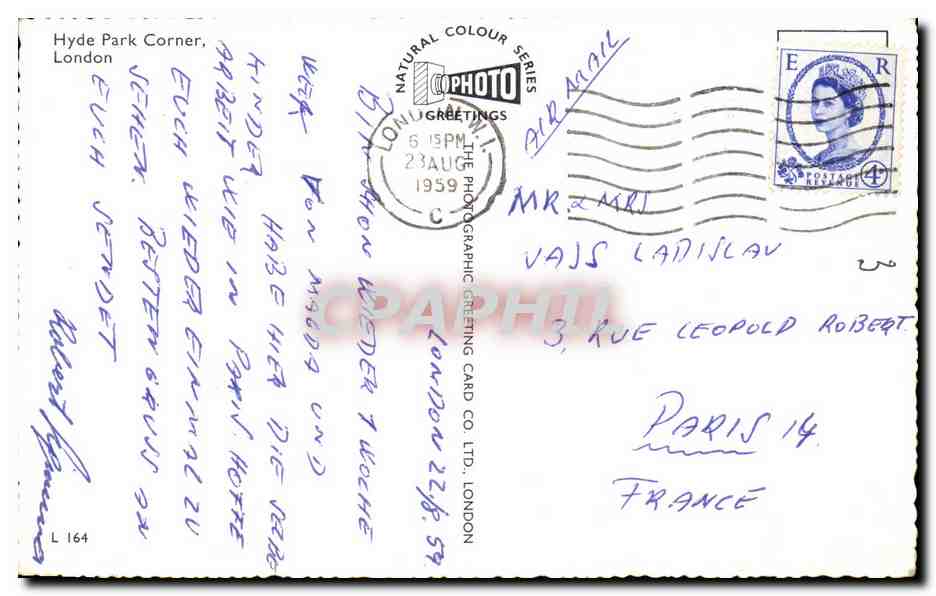 Hyde Park Corner,
London
NATURAL COLOUR SERIES
PHOTO
GREETINGS
LONDON. W.1.
6 15 PM
23 AUG
1959
C
E R
POSTAGE
REVENUE
4D
AIR MAIL
LONDON 22/8. 59
BIN SHON WIEDER 1 WOCHE
WEK VON MAGDA UND
KINDER. HABE HIER DIE SELBE
ARBEIT WIE IN PARIS. HOFFE
EUCH WIEDER EINMAL ZU
SEHEN. BESTEN GRUSS AN
EUCH SENDET
Robert
THE PHOTOGRAPHIC GREETING CARD CO. LTD., LONDON
MR & MRS
VASS LADISLAV
3, RUE LEOPOLD ROBERT
PARIS 14.
FRANCE
3
L 164
CPAPHIL